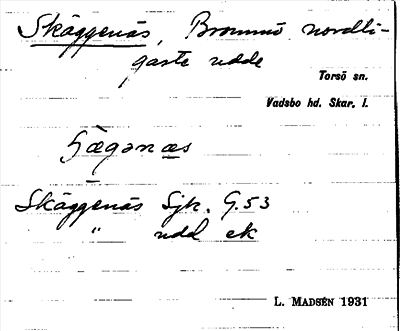 Skäggenäs, Brommö nordli-
gaste udde
Torsö sn.
Vadsbo hd. Skar. l.
Skäggenäs Sjk. G.53
" udd ek
L. MADSÉN 1931